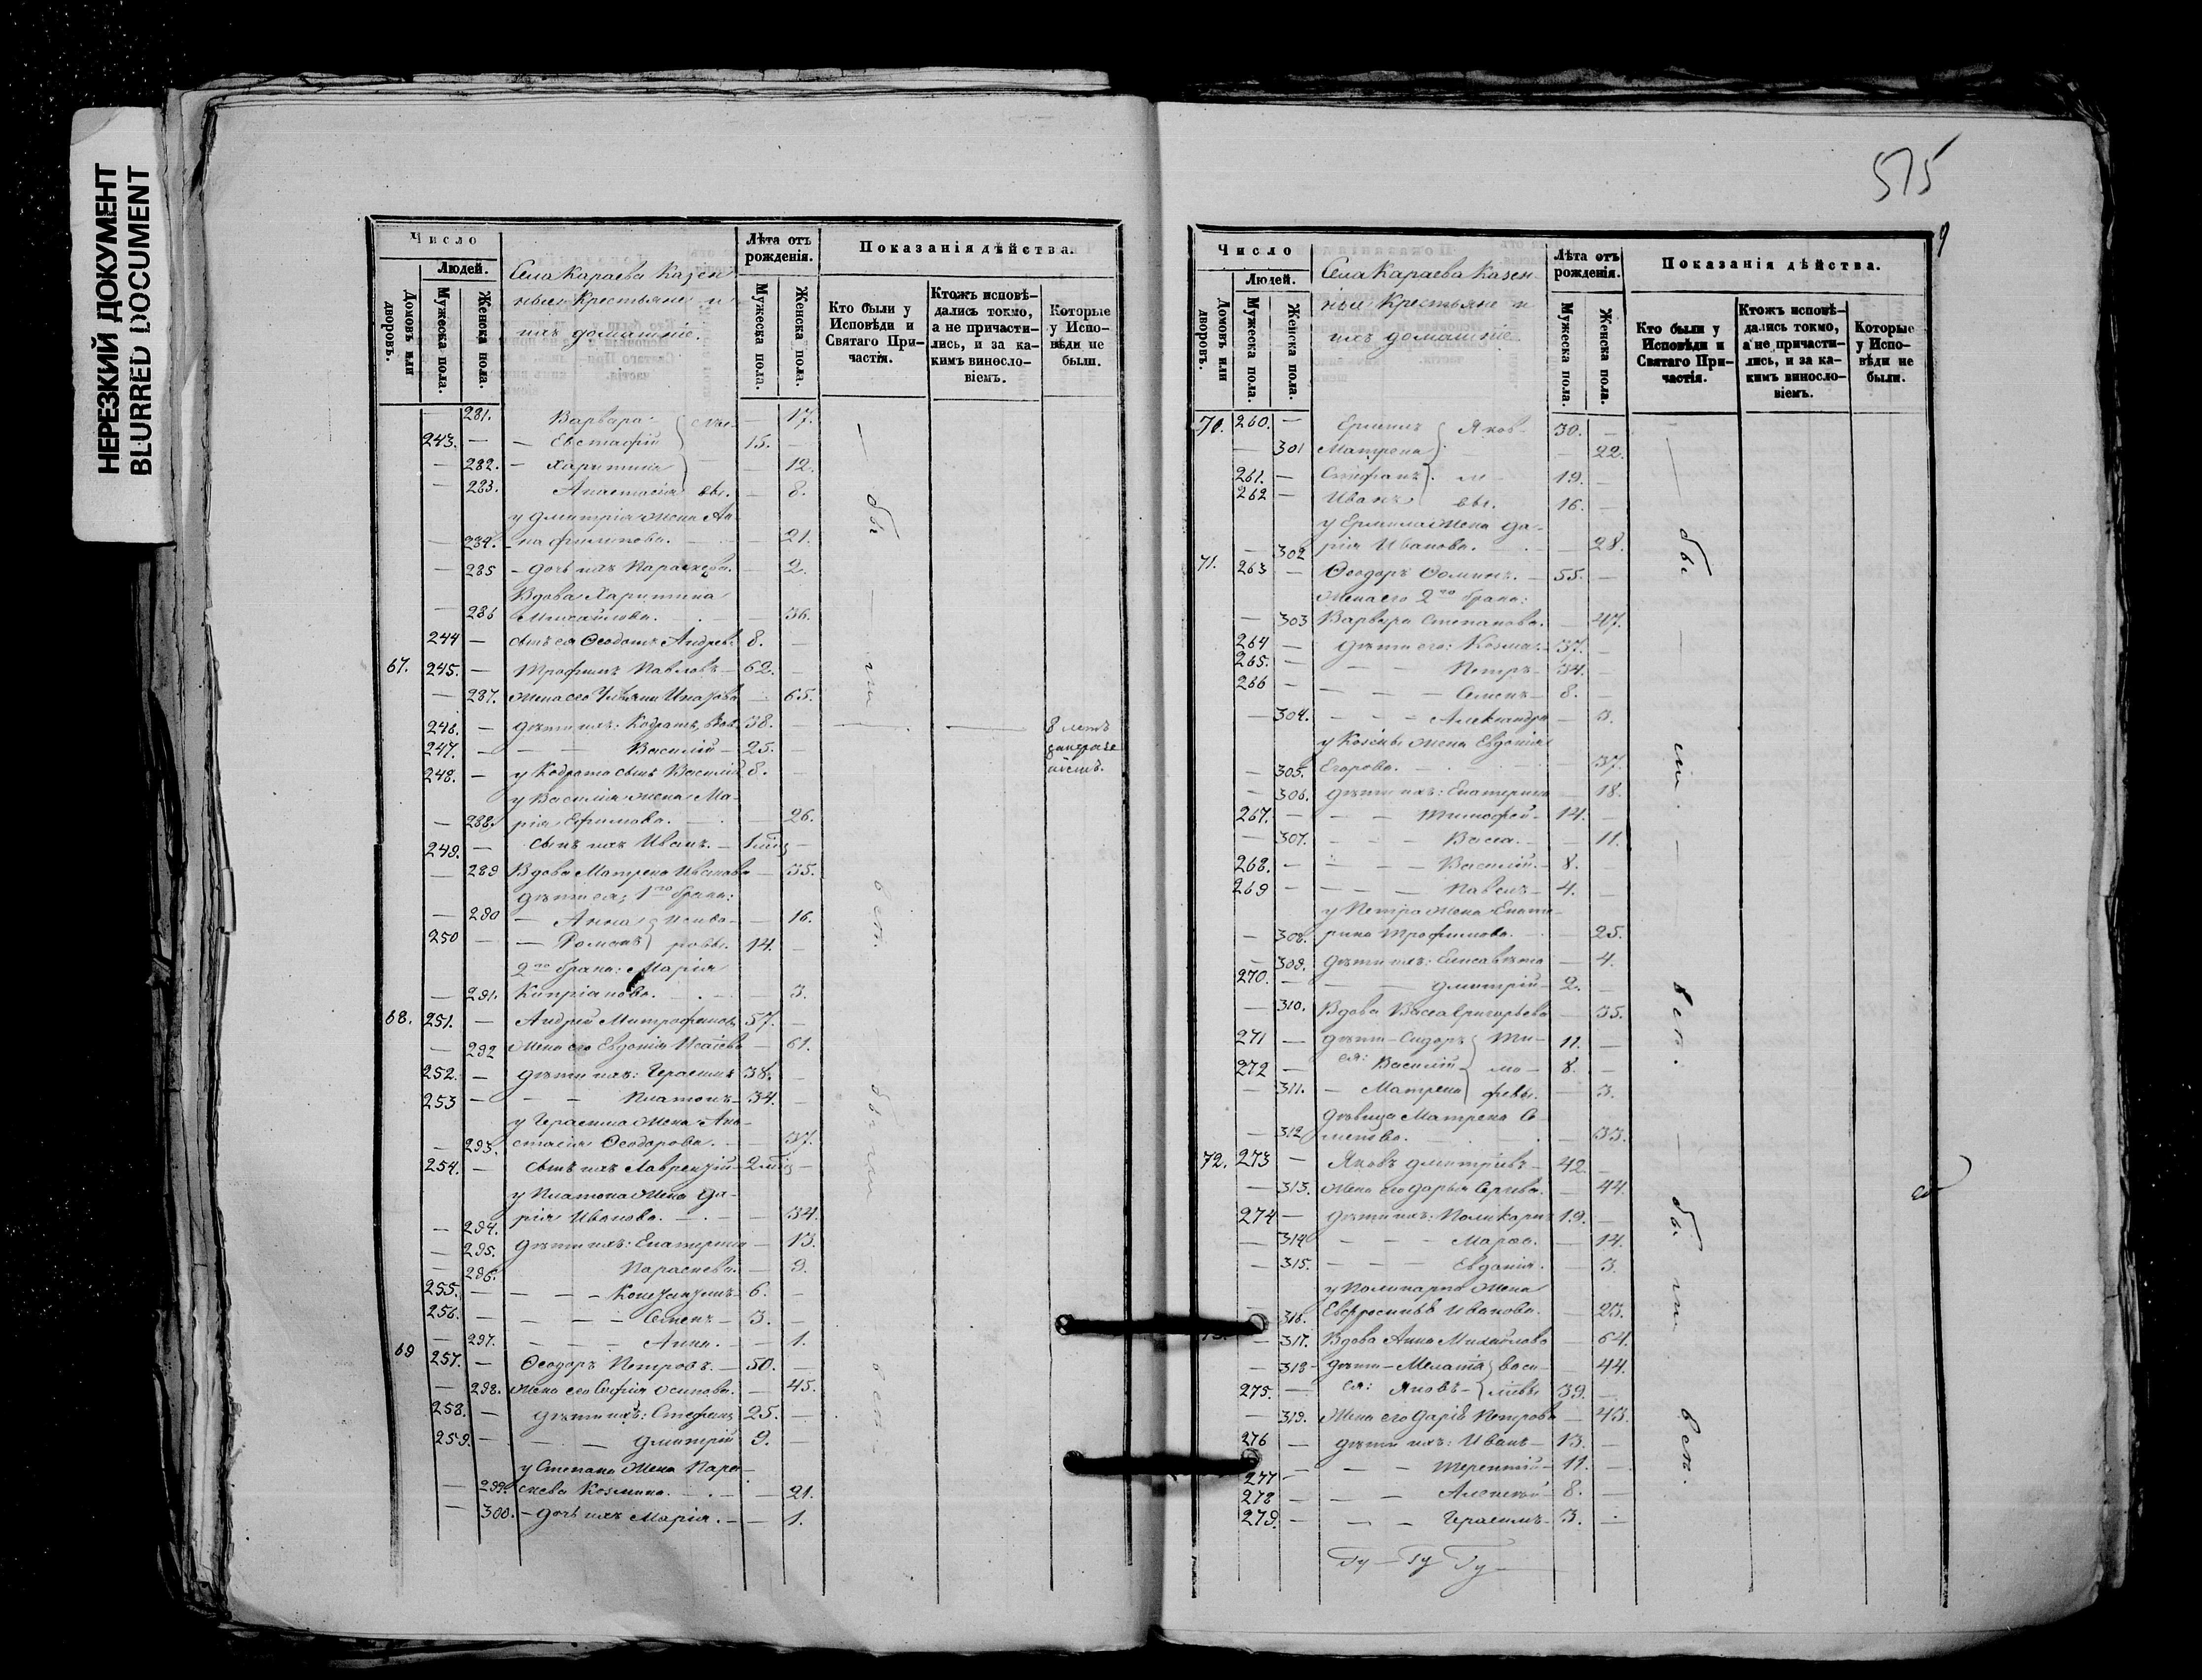 НЕРЕЗКИЙ ДОКУМЕНТ
BLURRED DOCUMENT
Число
Людей.
Домовъ или дворовъ.
Мужеска пола.
Женска пола.
Села Караева Казен
ные Крестьяне и
ихъ домашніе.
Лѣта отъ рожденія.
Мужеска пола.
Женска пола.
Показанія дѣйства.
Кто были у Исповѣди и Святаго Причастія.
Ктожъ исповѣ-
дались токмо,
а не причасти-
лись, и за ка-
кимъ виносло-
віемъ.
Которые
у Испо-
вѣди не
были.
281. Варвара 17.
243. — Евстафій 15.
282. — Харитина 12.
283. Анастасія вы. 8.
у Дмитрія жена Ан
284. на Филипова. 21.
285 — дочь ихъ Параскева. 2.
Вдова Харитина
286 Михайлова. 36.
244 — сынъ ея Ѳеодотъ Андрев. 8.
67. 245. — Трофимъ Павловъ 62.
287. жена его 65.
246. — дѣти ихъ: Кодратъ, 38.
247. — Василій 25.
248. — у Кодрата сынъ Василій 8.
8 летъ
у Василія жена Ма-
288. рія Ефимова. 26.
249. — сынъ ихъ Иванъ. 1
289 Вдова Матрена Иванова 35.
дѣти ея; 1го брака:
290 — Анна 16.
250 — Романъ 14.
2го брака: Марія
291. Кипріанова. 3.
68. 251. — Андрей Митрофанов 57.
292 жена его Евдокія Исаіева 61.
252. — дѣти ихъ: Герасимъ 38.
253 — Платонъ 34.
у Герасима жена Ана-
293. стасія Ѳеодорова. 37.
254. — сынъ ихъ Лаврентій 2
у Платона жена Да-
294. рія Иванова. 34.
295. дѣти ихъ: Екатерина 13.
296. Параскева. 9.
255. — Константинъ 6.
256. — Семенъ 3.
297. Анна. 1.
69 257. — Ѳеодоръ Петровъ. 50.
298. жена его Софія Осипова. 45.
258. — дѣти ихъ: Стефанъ 25.
259. — Дмитрій 9.
у Степана жена Пара-
299. скева Козмина. 21.
300. — дочь ихъ Марія. 1.
бы — ли — у исп.
575
9
Число
Людей.
Домовъ или дворовъ.
Мужеска пола.
Женска пола.
Села Караева Казен-
ные Крестьяне и
ихъ домашніе
Лѣта отъ рожденія.
Мужеска пола.
Женска пола.
Показанія дѣйства.
Кто были у Исповѣди и Святаго Причастія.
Ктожъ исповѣ-
дались токмо,
а не причасти-
лись, и за ка-
кимъ виносло-
віемъ.
Которые
у Испо-
вѣди не
были.
70. 260. — Ермилъ Яков- 30.
301 Матрена 22.
261. — Стефанъ 19.
262 — Иванъ вы. 16.
у Ермила жена Да-
302 рія Иванова. 28.
71. 263 — Ѳеодоръ Ѳоминъ. 55.
жена его 2го брака:
303 Варвара Степанова. 47.
264 — дѣти его: Козма 37.
265. — Петръ 34.
266 — Семенъ 8.
304. Александра 3.
у Козмы жена Евдокія
305. Егорова. 37.
306. дѣти ихъ: Екатерина 18.
267. — Тимофей 14.
307. Васса. 11.
268. — Василій. 8.
269 — Павелъ 4.
у Петра жена Екате-
308. рина Трофимова. 25.
309. дѣти ихъ: Елисавета 4.
270. — Дмитрій 2.
310. Вдова Васса Григорьева 35.
271 — дѣти Сидоръ Ти- 11.
272 — ея: Василій мо- 8.
311. — Матрена феевы. 3.
дѣвица Матрена Се-
312 менова. 33.
72. 273 — Яковъ Дмитріевъ 42.
313. жена его Дарья Сергѣева. 44.
274 — дѣти ихъ: Поликарпъ 19.
314 Марѳа. 14.
315. Евдокія. 3.
у Поликарпа жена
316. Евфросинья Иванова. 23.
317. Вдова Анна Михайлова 64.
318 дѣти — Меланія Васи- 44.
275. — ея: Яковъ льевы 39.
319. жена его Дарія Петрова 43.
276 — дѣти ихъ: Иванъ 13.
277 — Терентій 11.
278 — Алексѣй 8.
279. — Герасимъ 3.
бы — ли — у исп. — бы ли у исп.